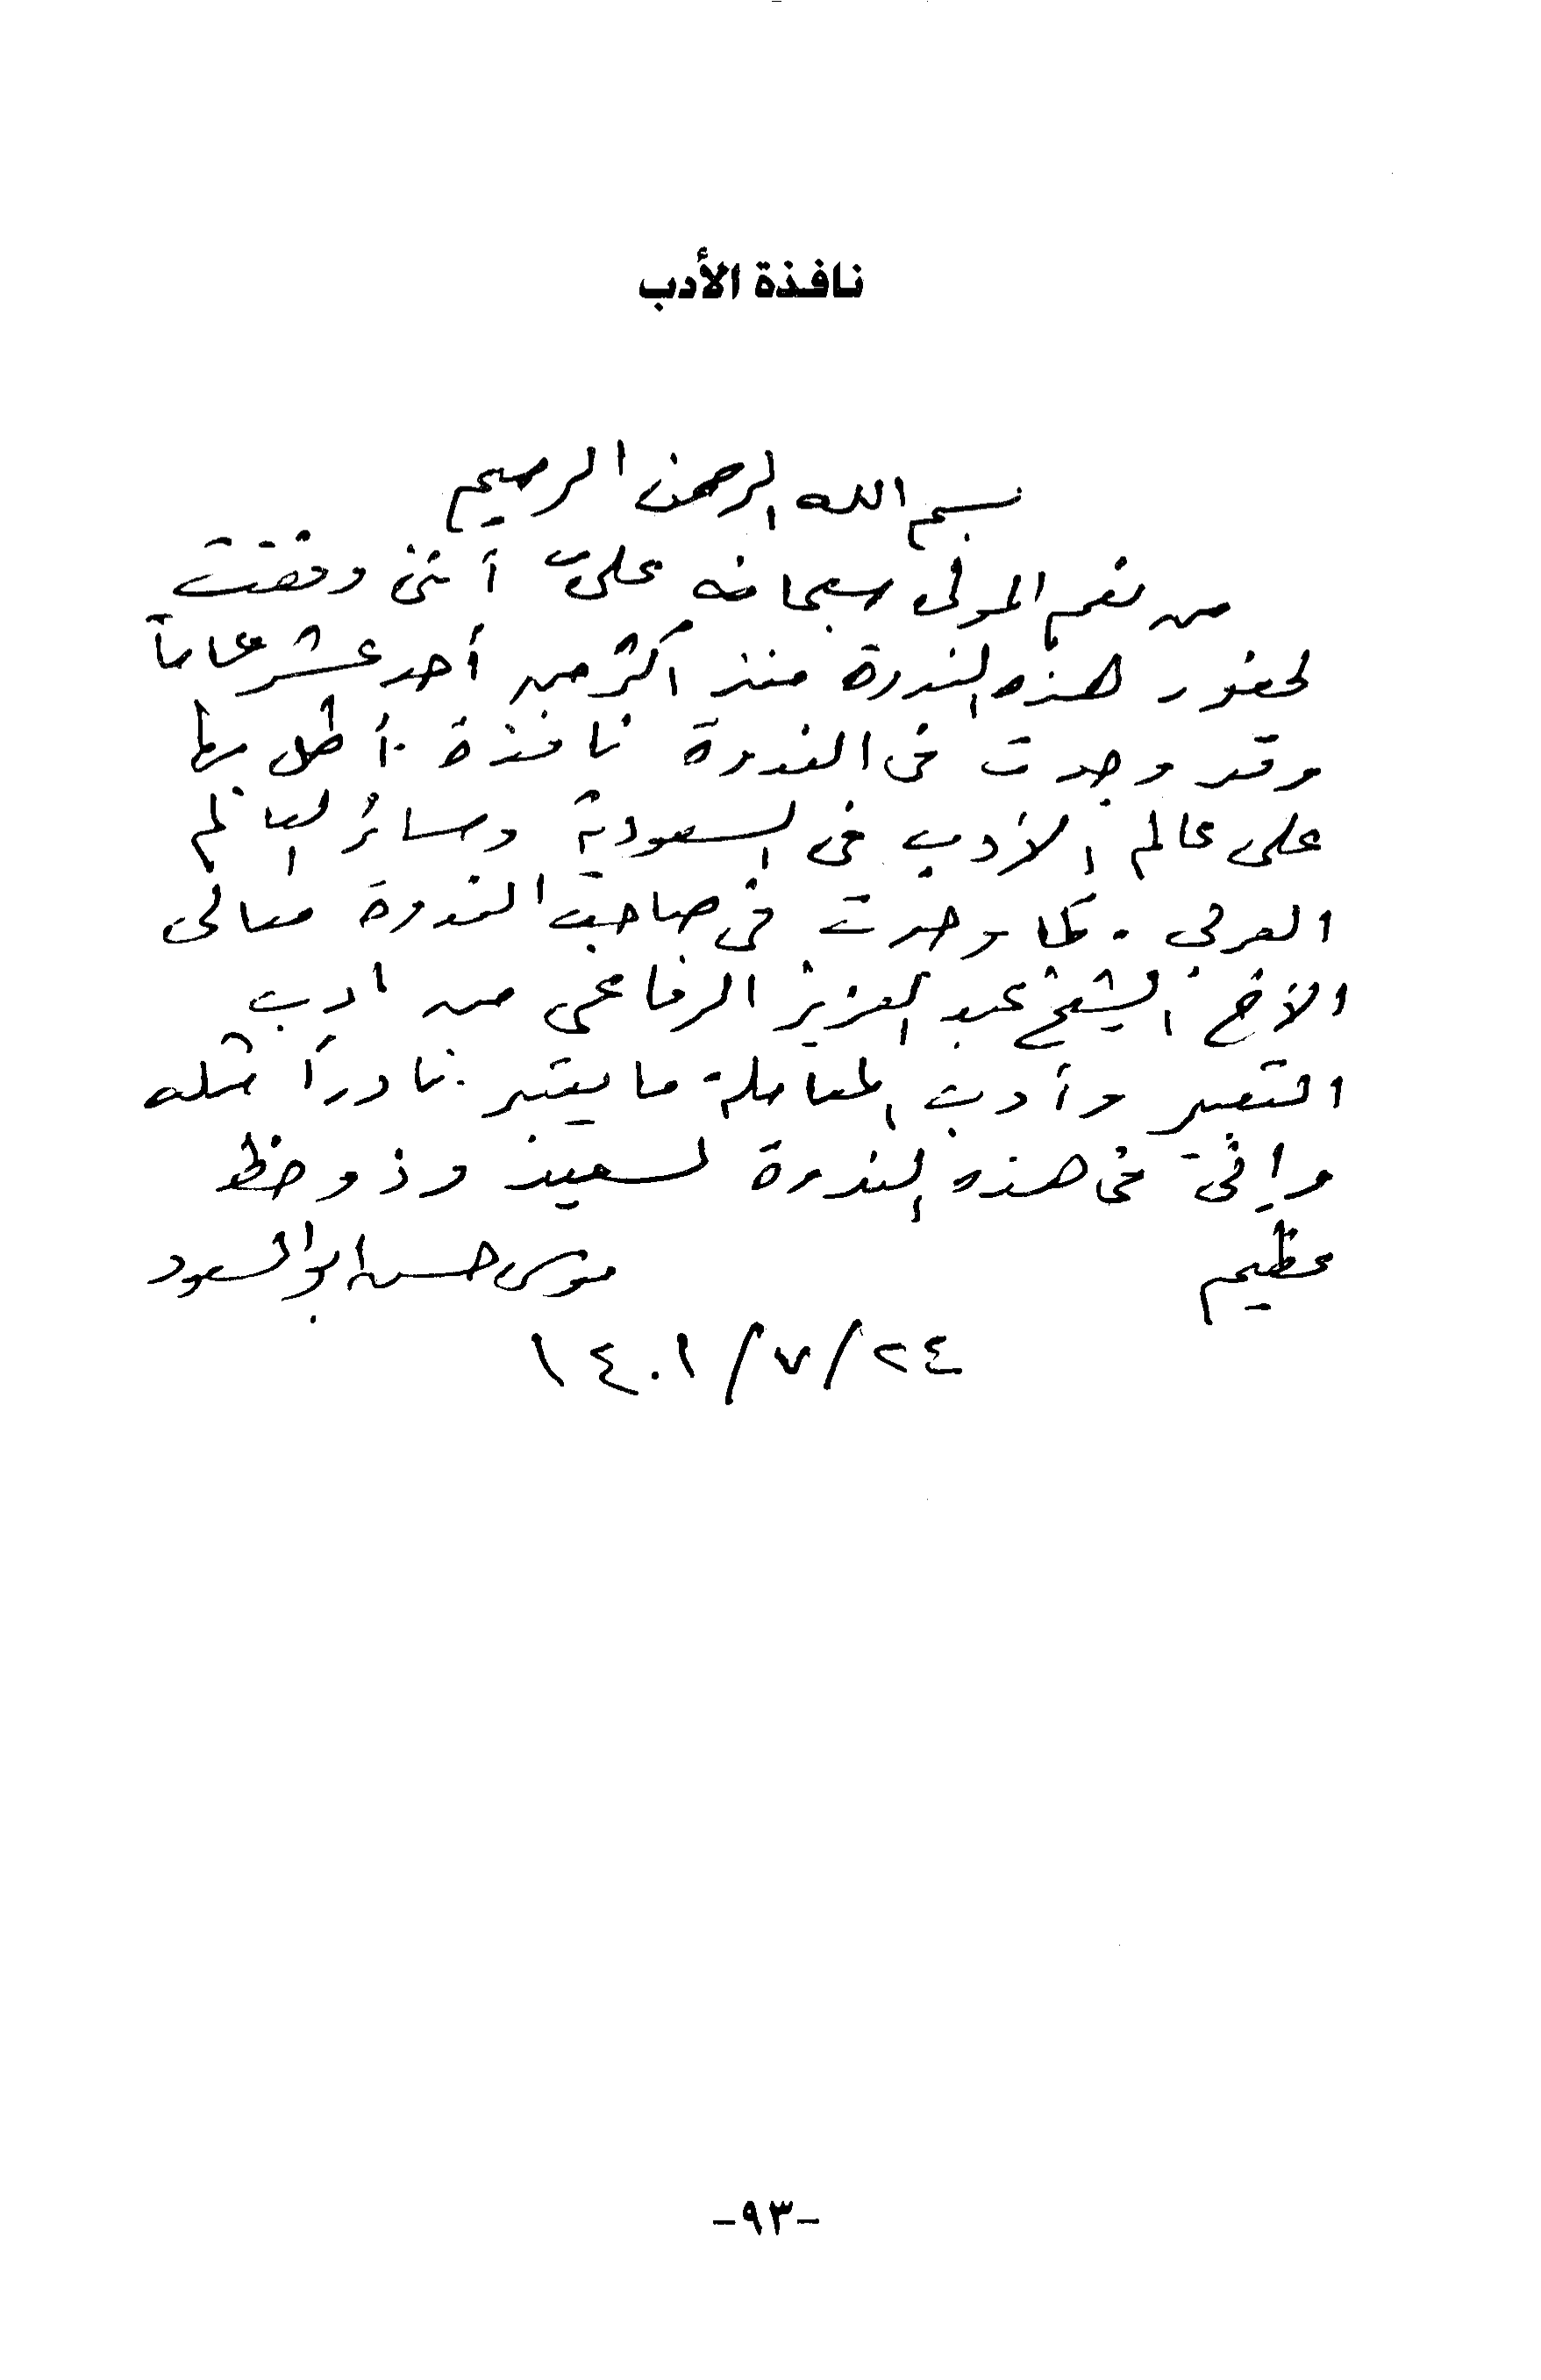 نافذة الأدب
بسم الله الرحمن الرحيم
من نعم المولى سبحانه عليّ أنني وفقت
لحضور هذه الندوة منذ أكثر من أحد عشر عاماً
وقد وجدت في الندوة نافذة أطل بها
على عالم الأدب في السعودية وسائر العالم
العربي . كما وجدت في صاحب الندوة معالي
الأخ الشيخ عبد العزيز الرفاعي من ادب
التعبير وأدب المعاملة ما يعتبر نادراً مثله
وإني في هذه الندوة لسعيد وذو حظ
عظيم
موسى حسن ابو السعود
٢٤/٧/١٤٠١
-٩٣-